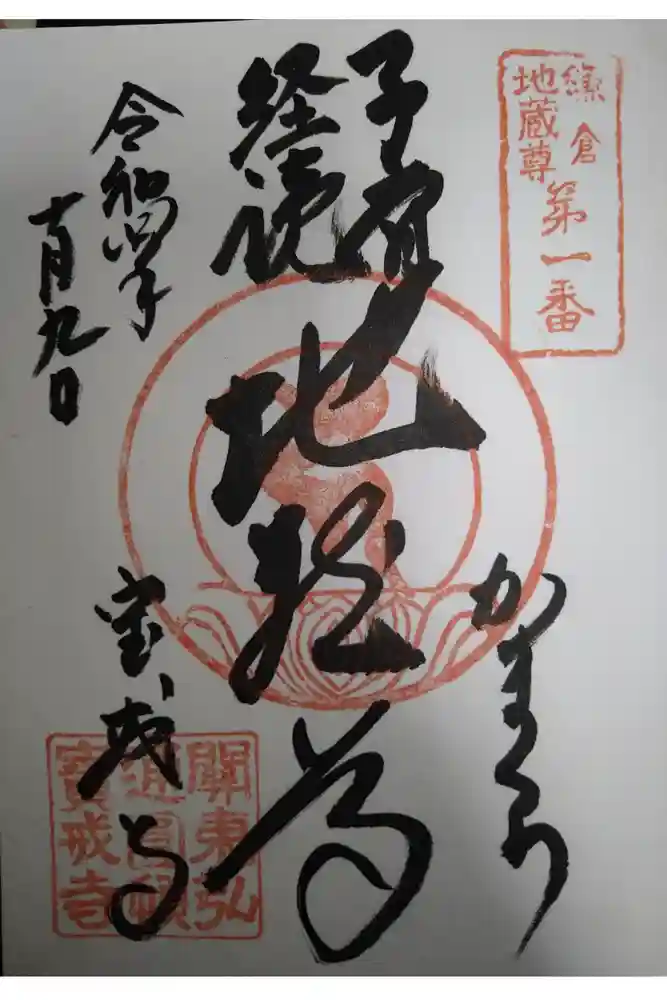 鎌倉
地蔵尊
第一番
子育
経読
地蔵尊
かまくら
令和四年
十月九日
宝戒寺
關東弘
通圓頓
寶戒寺